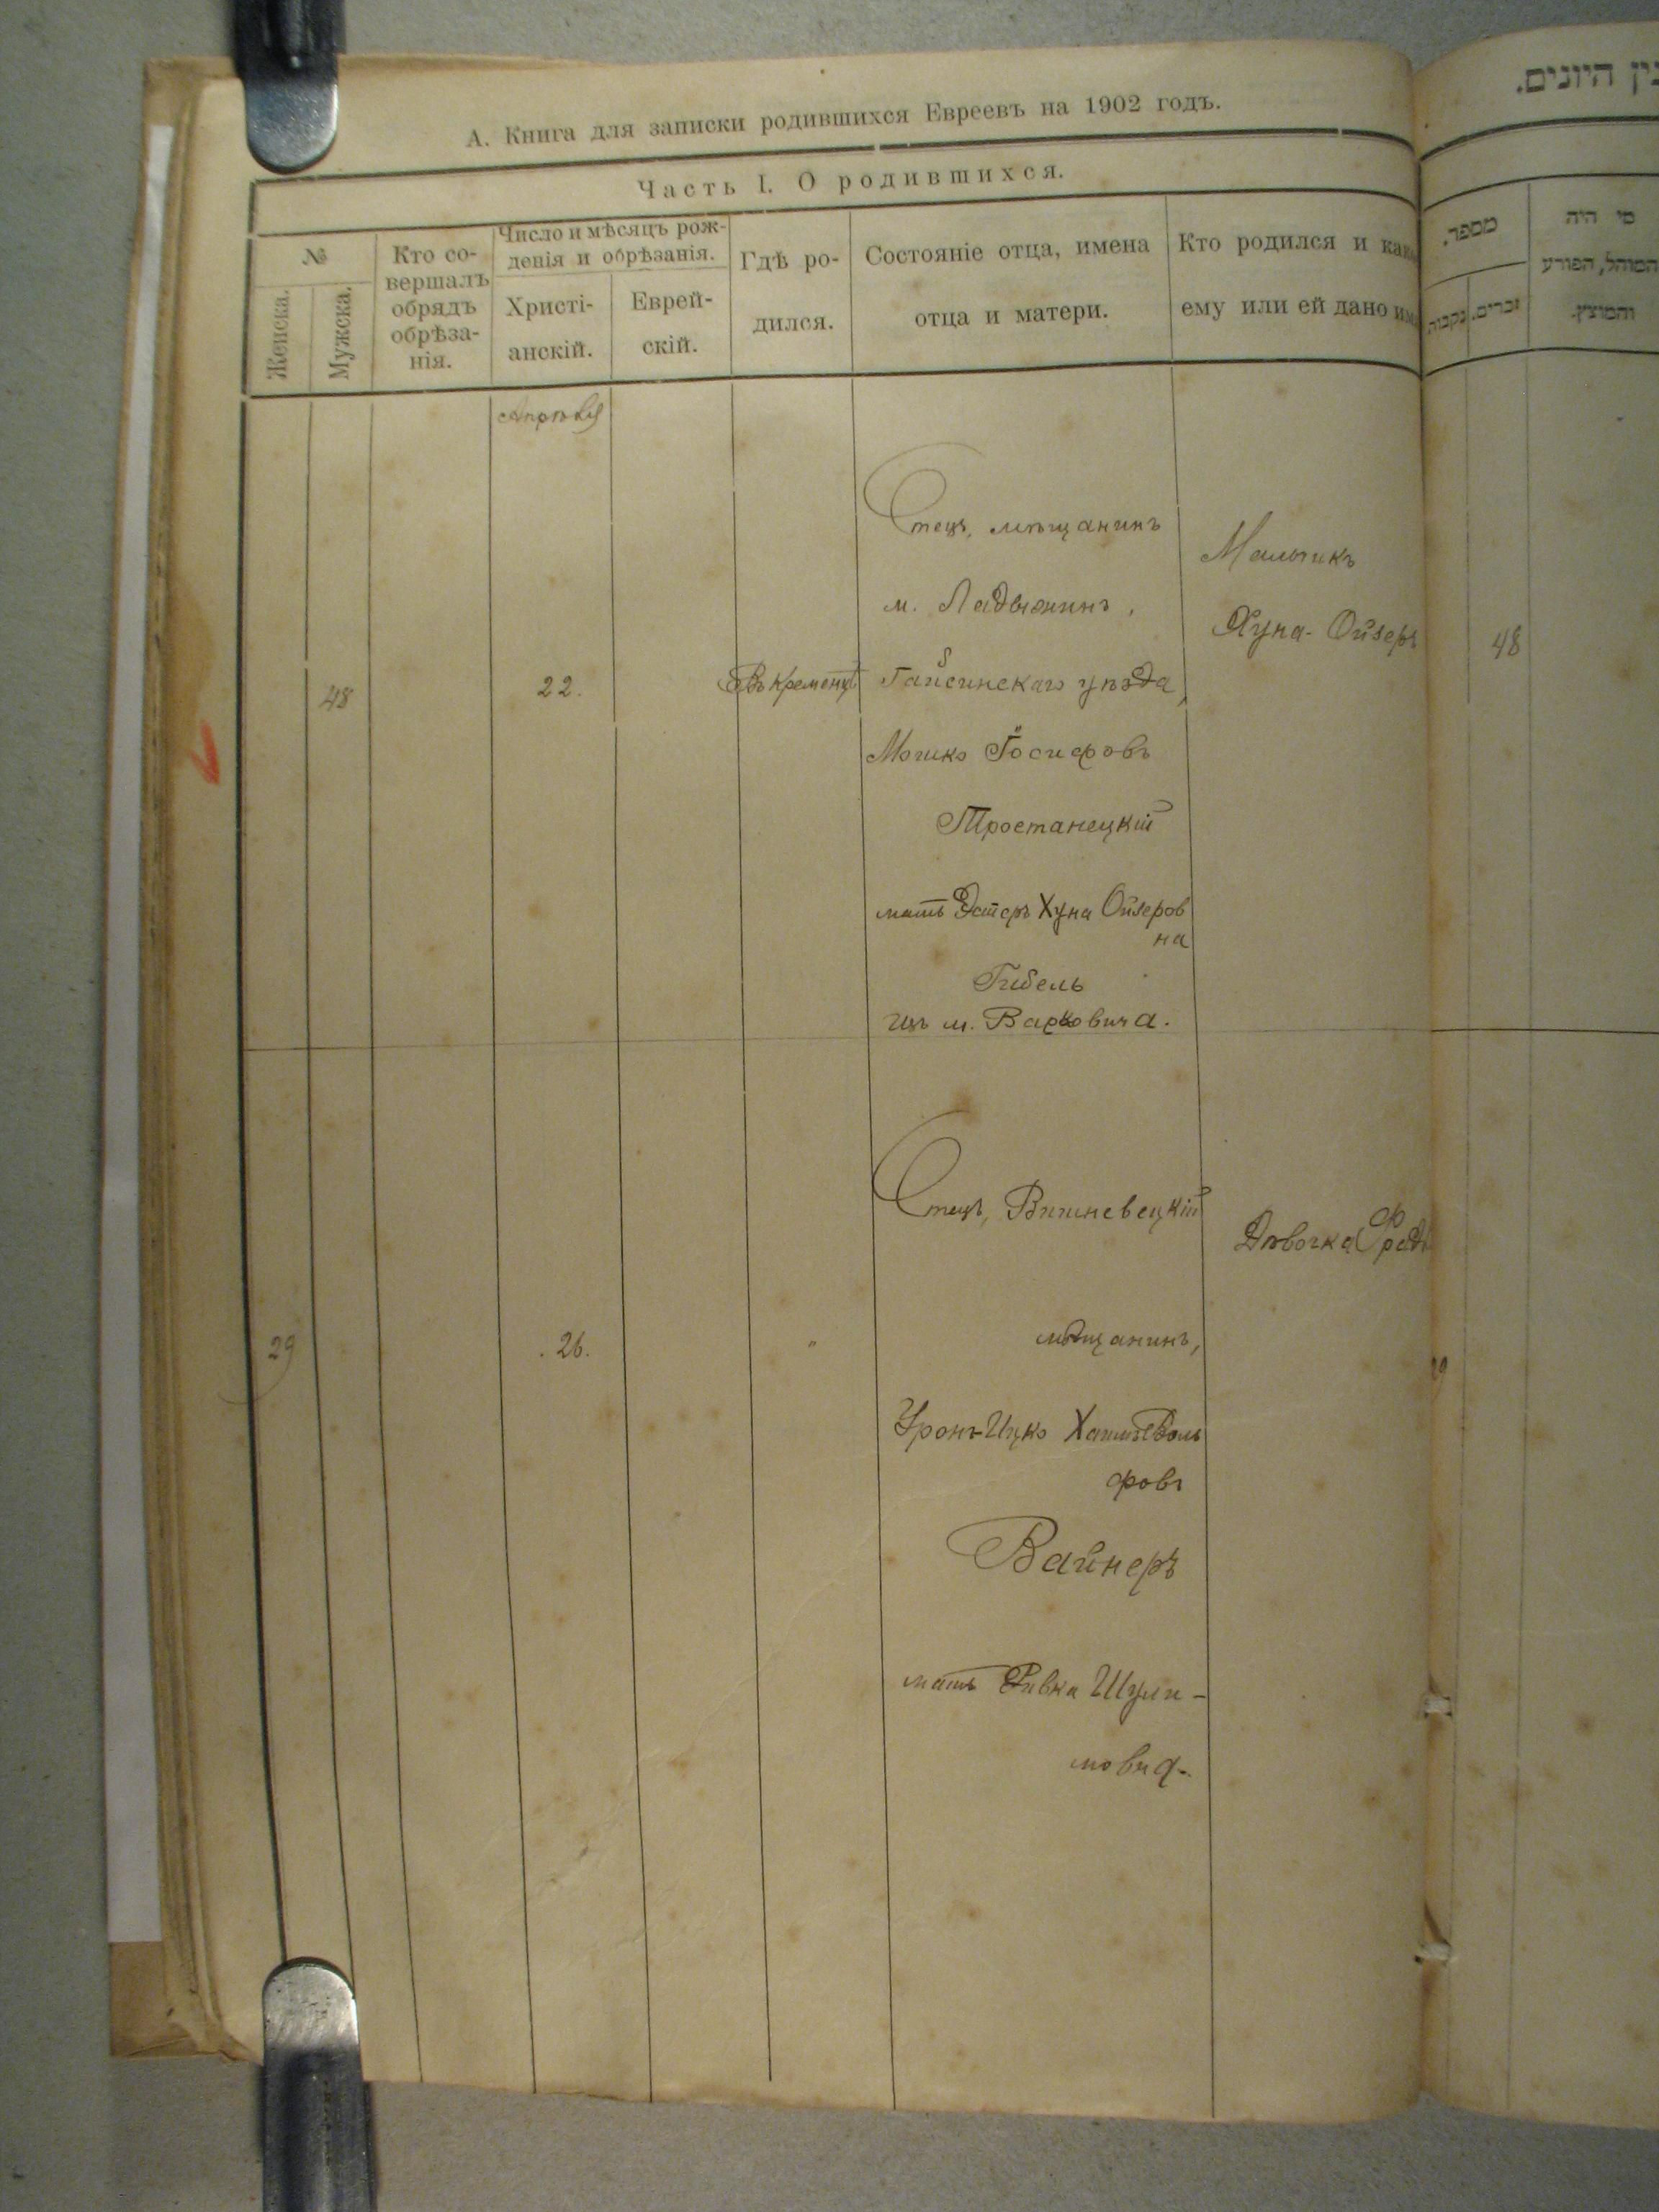 А. Книга для записки родившихся Евреевъ на 1902 годъ.
Часть I. О родившихся.
№
Женска.
Мужска.
Кто со-
вершалъ
обрядъ
обрѣза-
нія.
Число и мѣсяцъ рож-
денія и обрѣзанія.
Христі-
анскій.
Еврей-
скій.
Гдѣ ро-
дился.
Состояніе отца, имена
отца и матери.
Кто родился и како
ему или ей дано им
Апрѣля
48
22.
Въ Кременцѣ
Отецъ, мѣщанинъ
м. Ладыжинъ,
Гайсинскаго уѣзда,
Мошко Іосифовъ
Тростанецкій
мать Эстеръ Хуна Ойзеров
на
Гибель
изъ м. Варковича.
Мальчикъ
Хуна-Ойзеръ
29
26.
"
Отецъ, Вишневецкій
мѣщанинъ,
Уронъ-Ицко Хаимъ Воль
фовъ
Вайнеръ
мать Ривка Шули-
мовна.
Дѣвочка
ין היונים.
מספר.
נקבות
זכרים.
מי היה
המוהל, הפורע
והמוצץ.
48
29